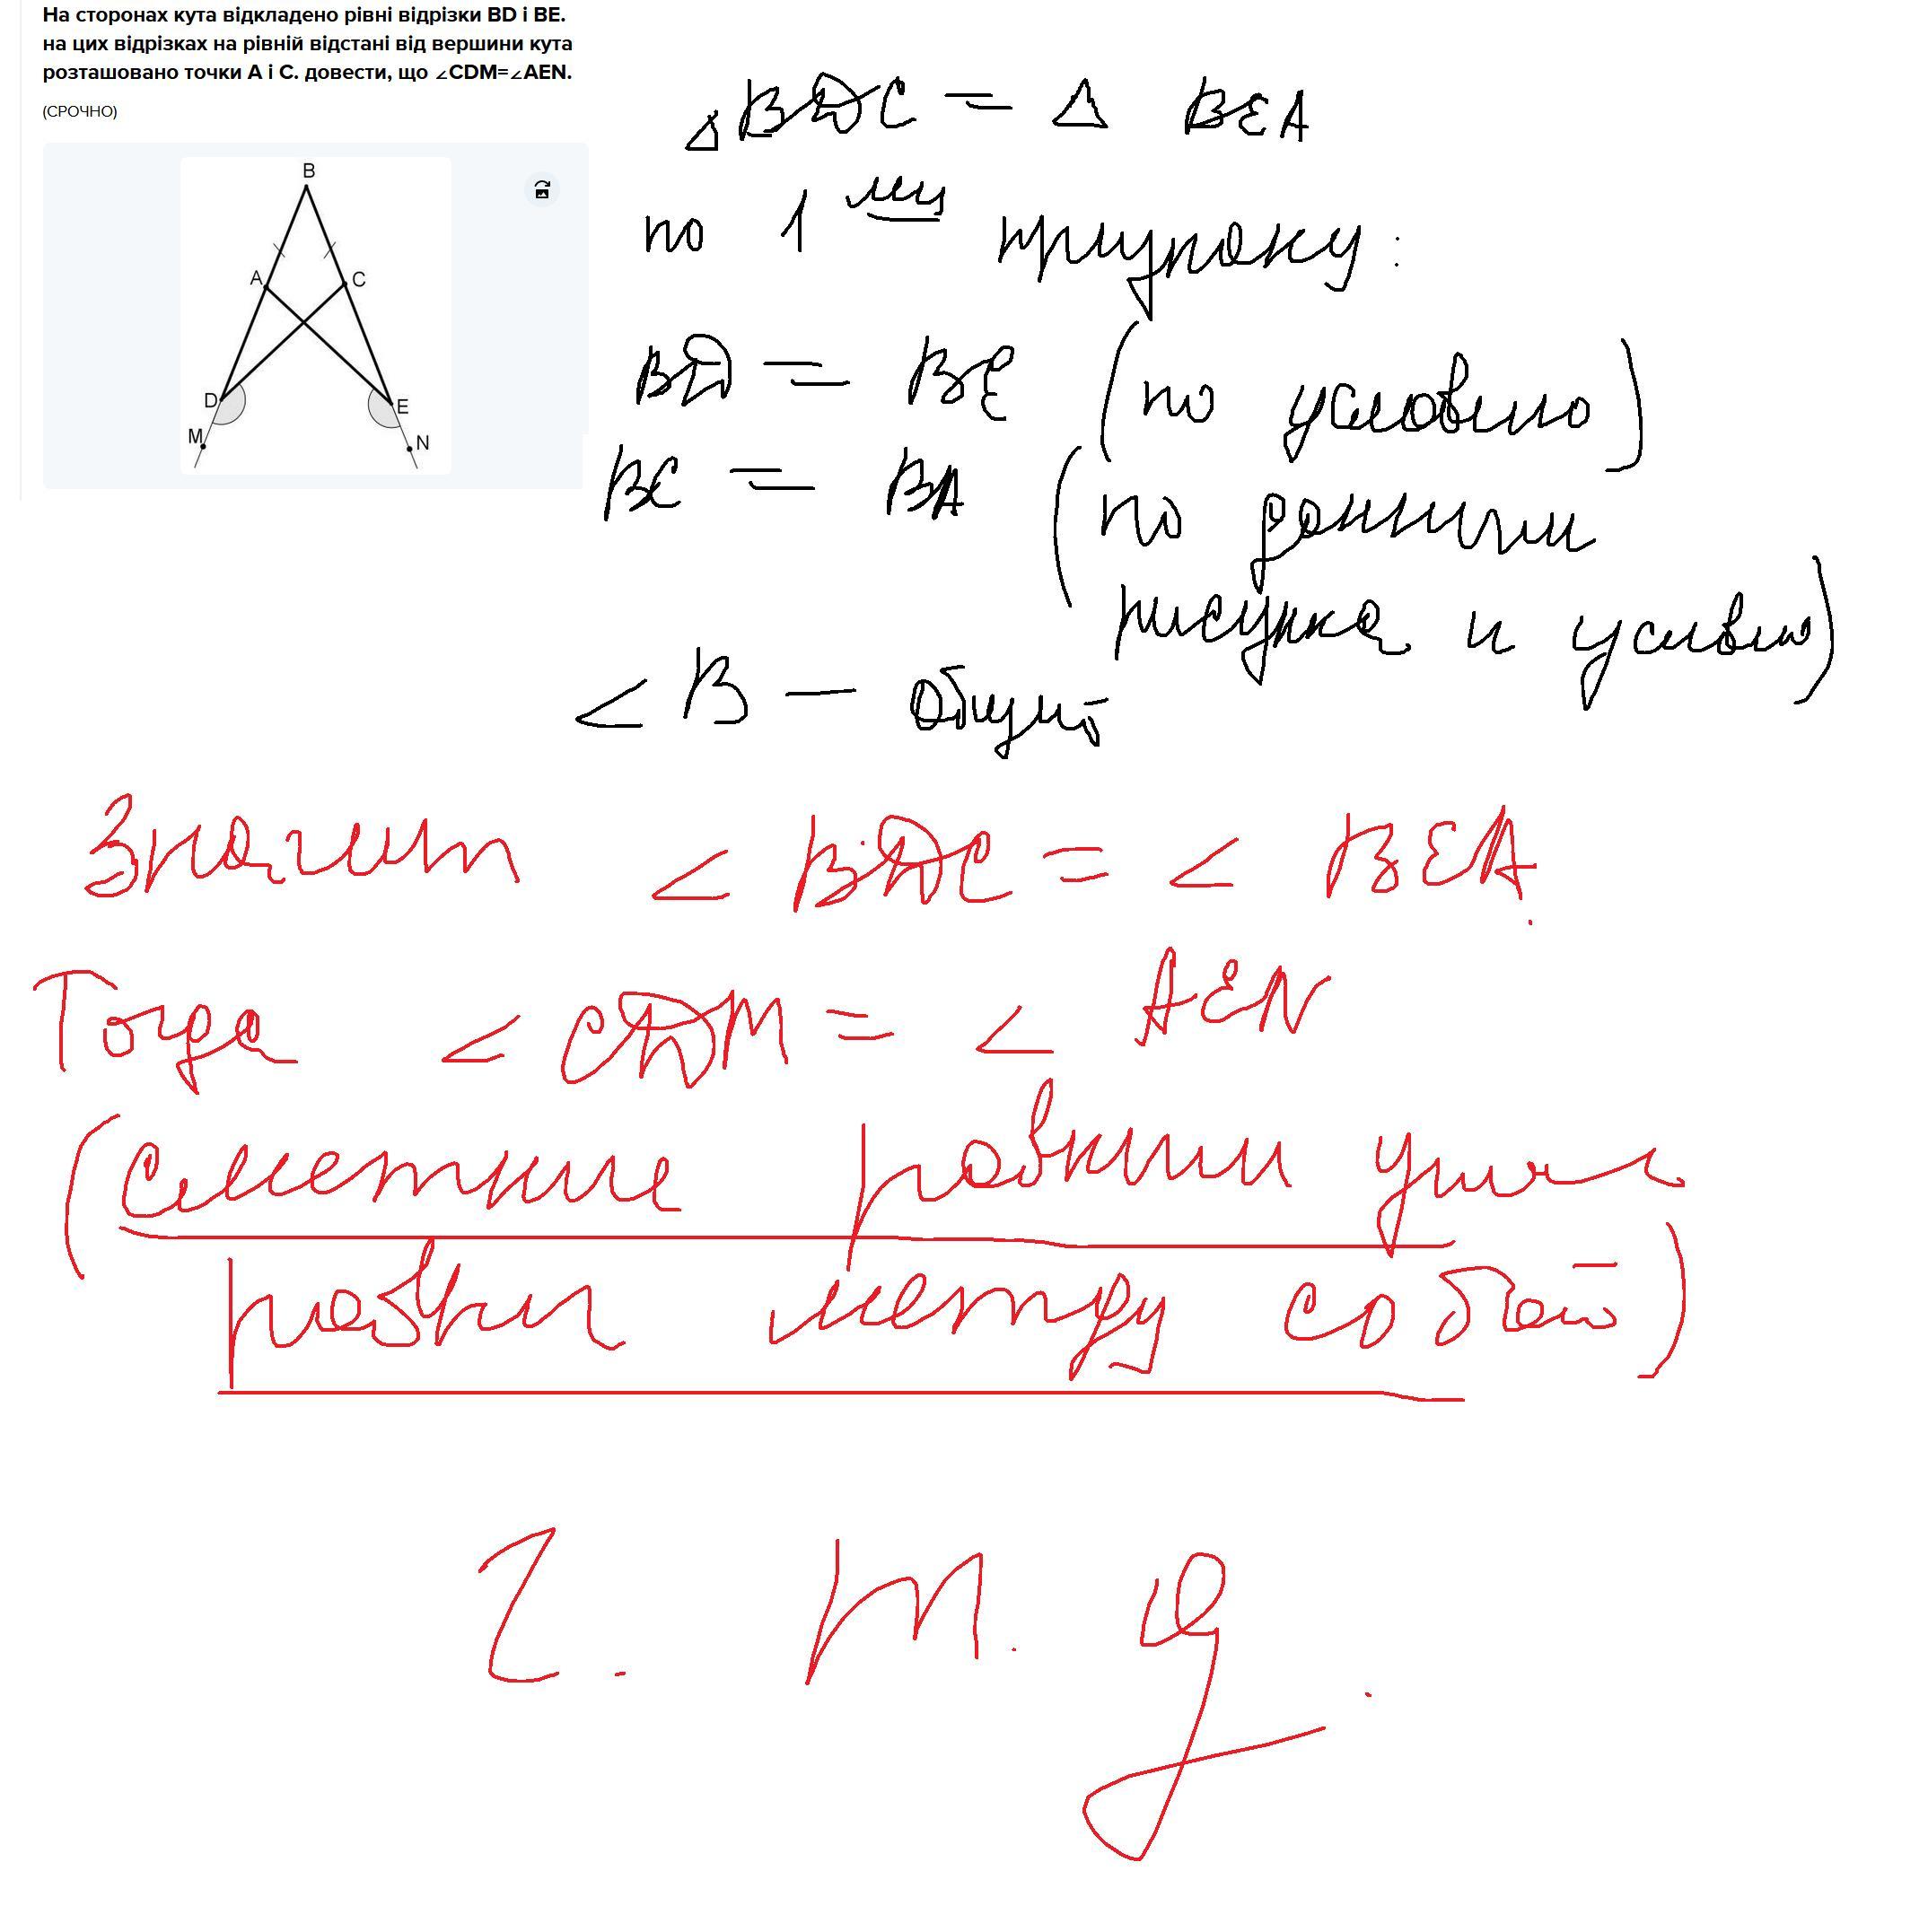 На сторонах кута відкладено рівні відрізки BD і BE.
на цих відрізках на рівній відстані від вершини кута
розташовано точки А і С. довести, що ∠CDM=∠AEN.
(СРОЧНО)
B
A
C
D
E
M
N
△ BDC = △ BEA
по 1 му признаку:
BD = BE (по условию)
BC = BA (по данным
рисунка и условию)
< B — общий
Значит < BDC = < BEA.
Тогда < CDM = < AEN
(смежные равным углам
равны между собой)
Ч. т. д.